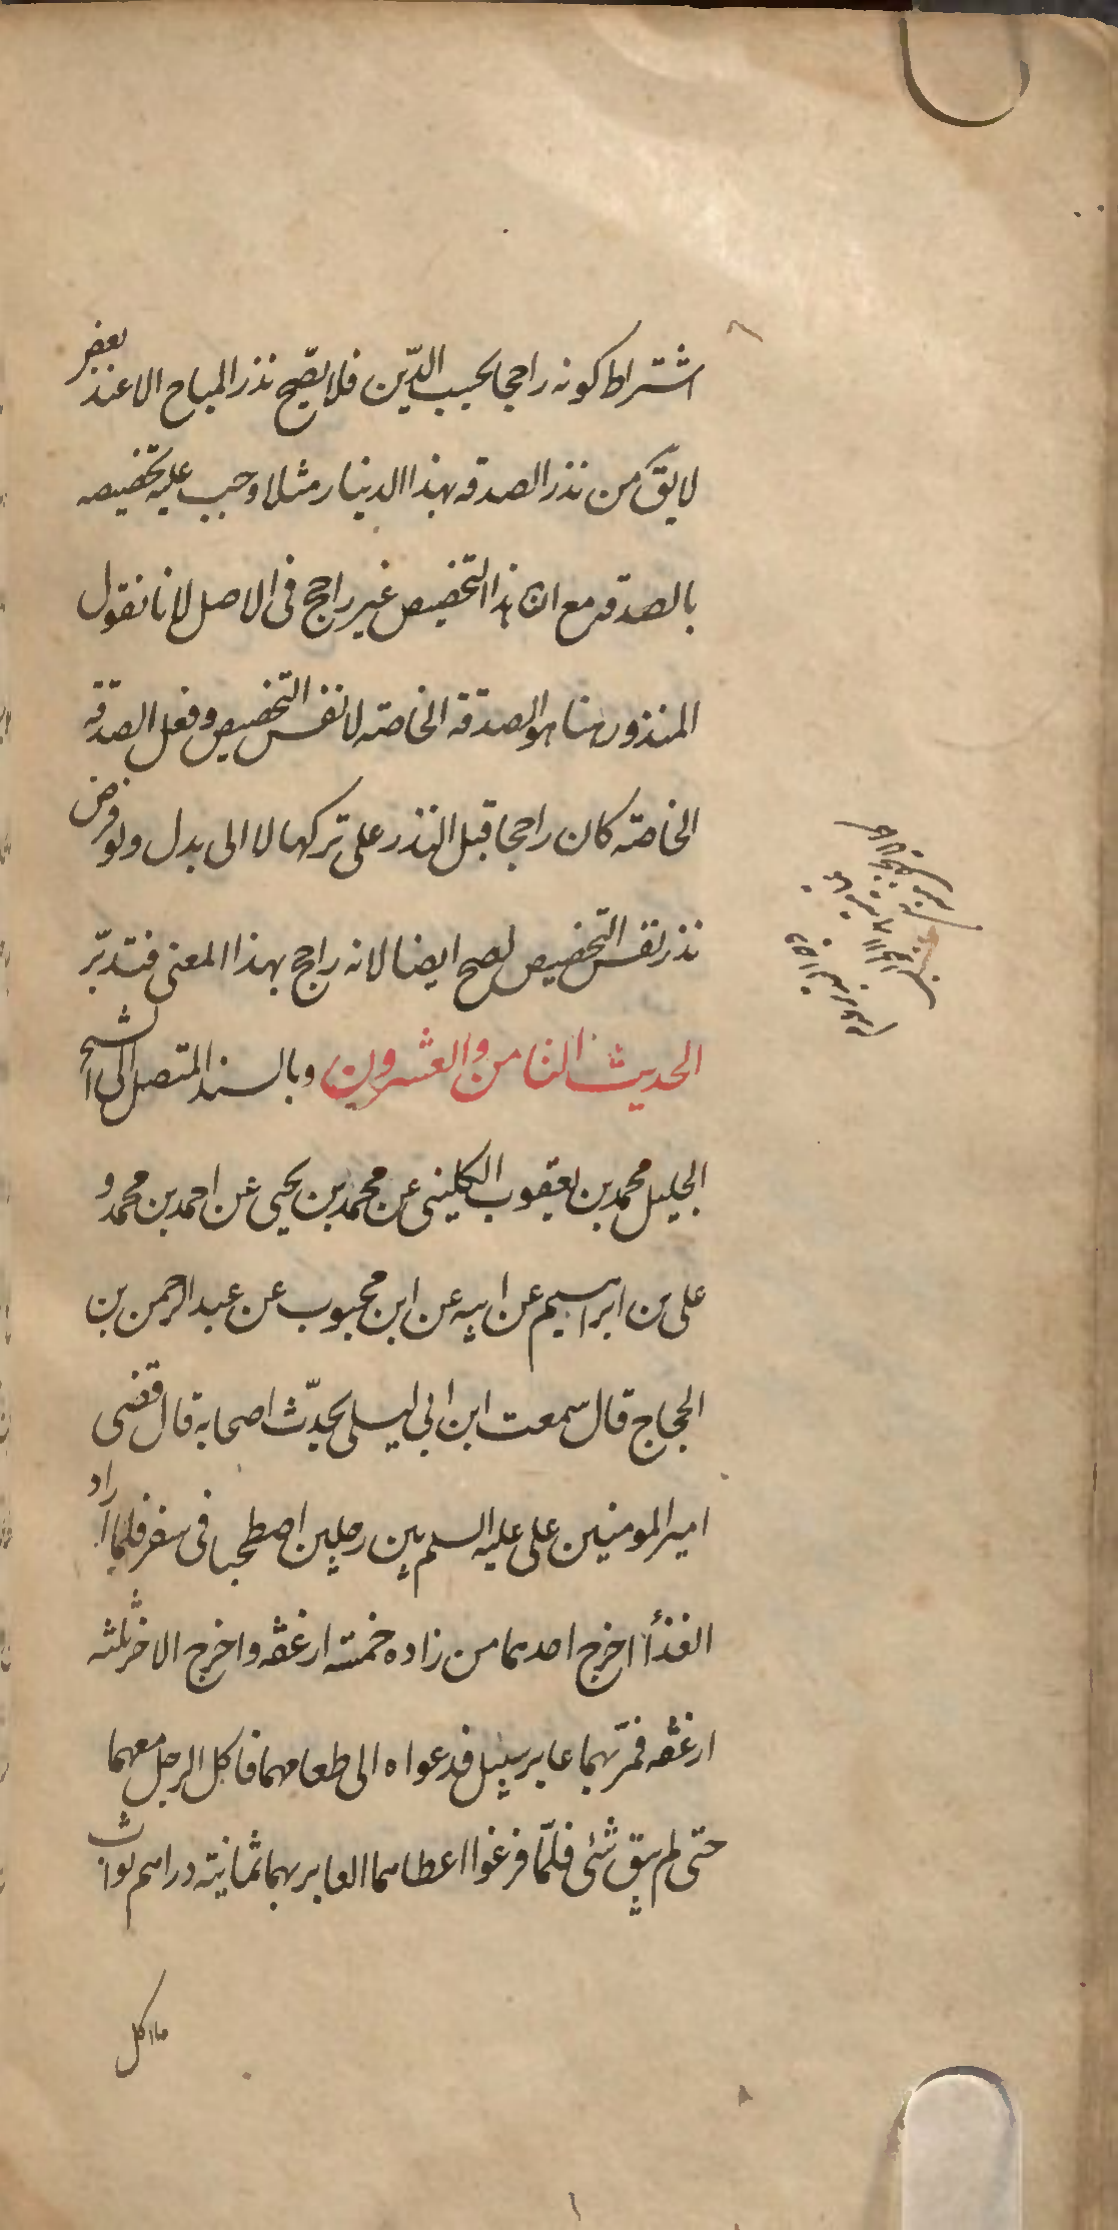 اشتراط كونه راجحا بحسب الدّين فلا يصّح نذر المباح الا عند بعض
لا يقّ من نذر الصدقه بهذا الدينار مثلا وجب عليه تخصيصه
بالصدقه مع ان هذا التخصيص غير راجح فى الاصل لانا نقول
المنذور هنا هو الصدقه الخاصّه لا نفس التخصيص وفعل الصدقه
الخاصّه كان راجحا قبل النذر على تركها لا الى بدل ولو فرض
نذر نفس التخصيص لصح ايضا لانه راجح بهذا المعنى فتدبّر
الحديث الثامن والعشرون وبالسند المتصل الى الشيخ
الجليل محمد بن يعقوب الكلينى عن محمد بن يحيى عن احمد بن محمد و
على بن ابراهيم عن ابيه عن ابن محبوب عن عبد الرحمن بن
الحجاج قال سمعت ابن ابى ليلى يحدّث اصحابه قال قضى
امير المومنين على عليه السلم بين رجلين اصطحبا فى سفر فلما اراد
الغذأ اخرج احدهما من زاده خمسته ارغفه واخرج الاخر ثلثه
ارغفه فمرّ بهما عابر سبيل فدعواه الى طعامهما فاكل الرجل معهما
حتى لم يبق شئى فلمّا فرغوا اعطاهما العابر بهما ثمانيّه دراهم ثواب
ما اكل